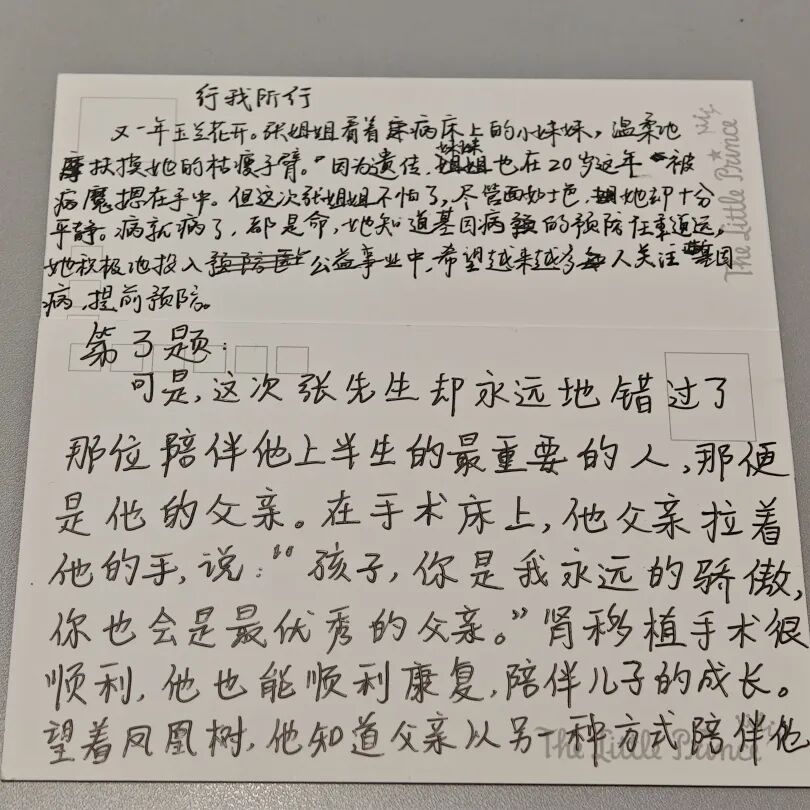 行我所行
又一年玉兰花开。张姐姐看着病床上的小妹妹，温柔地
扶摸她的枯瘦手臂。"因为遗传，妹妹也在20岁这年"被
病魔摁在手中。但这次张姐姐不怕了，尽管面如土色，她却十分
平静。病就病了，都是命，她知道基因病的预防任重道远，
她积极地投入公益事业中，希望越来越多人关注基因
病，提前预防。
The Little Prince
第3题：
可是，这次张先生却永远地错过了
那位陪伴他上半生的最重要的人，那便
是他的父亲。在手术床上，他父亲拉着
他的手，说："孩子，你是我永远的骄傲，
你也会是最优秀的父亲。"肾移植手术很
顺利，他也能顺利康复，陪伴儿子的成长。
望着凤凰树，他知道父亲以另一种方式陪伴他
The Little Prince